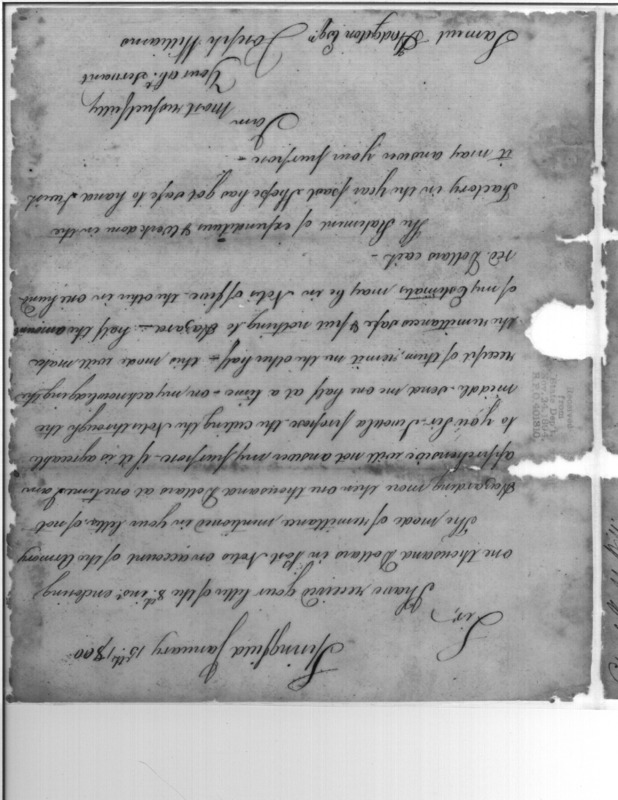 Springfield January 15th 1800
Sir,
I have received your letter of the 8th inst. enclosing
one thousand Dollars in Post Notes on account of the Armory
The mode of remittance, mentioned in your letter, of not
Hazarding more then one thousand Dollars at one time I am
apprehensive will not answer my purpose - if it is agreeable
to you Sir - I would propose the cuting the Notes through the
middle send me one half at a time - on my acknowledging the
receipt of them, remit me the other half - this mode will make
the remittances safe & put nothing to Hazard - half the amount
of my Estimates may be in Notes of five the other in one hund-
red Dollars each -
The Statement of expenditures & Work done in the
Factory in the Year past I hope has got safe to hand & wish
it may answer your purpose -
I am
most respectfully
Your obt. Servant
Joseph Williams
Samuel Hodgdon Esqr
received
from
State Dep't